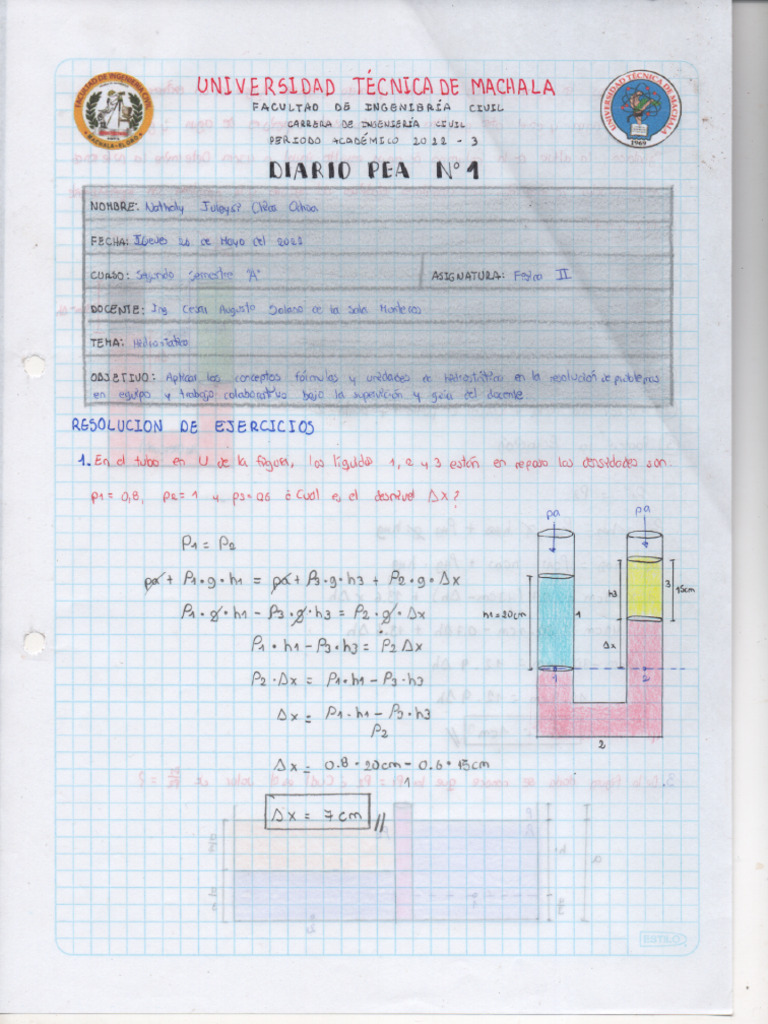 UNIVERSIDAD TÉCNICA DE MACHALA
FACULTAD DE INGENIERÍA CIVIL
CARRERA DE INGENIERÍA CIVIL
PERIODO ACADÉMICO 2022 - 3
DIARIO PEA Nº 1
FACULTAD DE INGENIERIA CIVIL
MACHALA - EL ORO
UNIVERSIDAD TÉCNICA DE MACHALA
1969
NOMBRE: Nathaly Ochoa
FECHA: de Mayo del
CURSO: Segundo Semestre "A" ASIGNATURA: Física II
DOCENTE: Ing. Cesar Augusto Solano de la Sala Monteros
TEMA: Hidrostática
OBJETIVO: Aplicar los conceptos fórmulas y unidades de hidrostática en la resolución de problemas
en equipo y trabajo colaborativo bajo la supervición y guía del docente.
RESOLUCION DE EJERCICIOS
1. En el tubo en U de la figura, los líquidos 1, 2 y 3 están en reposo las densidades son:
p1 = 0,8, p2 = 1 y p3 = 0.6 ¿Cuál es el desnivel Δx?
P1 = P2
pa + P1·g·h1 = pa + P3·g·h3 + P2·g·Δx
P1·g·h1 - P3·g·h3 = P2·g·Δx
P1·h1 - P3·h3 = P2 Δx
P2·Δx = P1·h1 - P3·h3
Δx = P1·h1 - P3·h3
P2
Δx = 0.8·20cm - 0.6·15cm
1
Δx = 7cm //
pa
pa
h1=20cm
1
h3
3
15cm
Δx
1
2
2
ESTILO